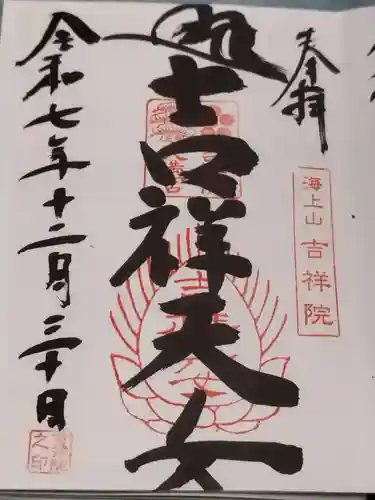 奉拝
海上山 吉祥院
吉祥天女
令和七年十二月三十日
之印